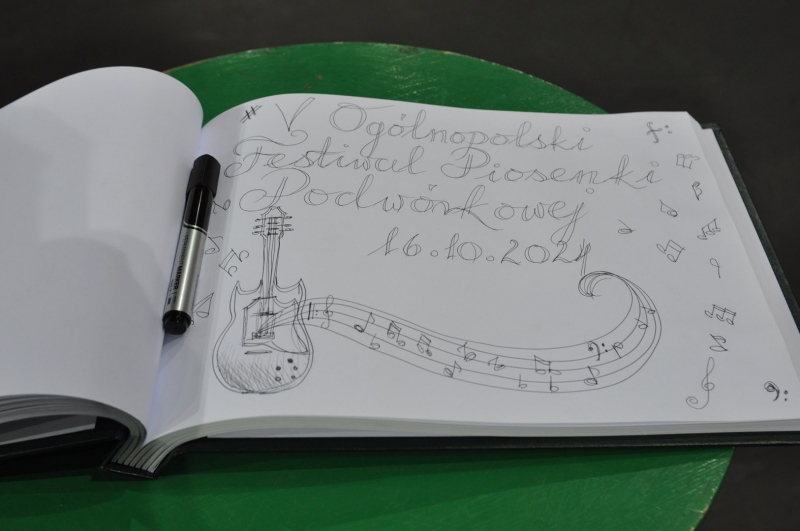 V Ogólnopolski
Festiwal Piosenki
Podwórkowej
16.10.2024